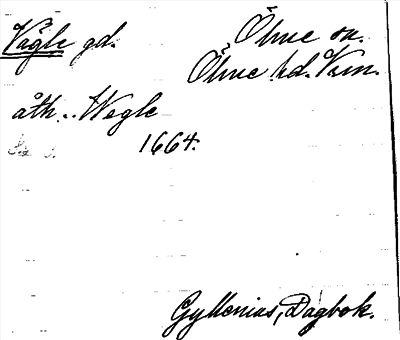 Vägle gd.
Ölme sn.
Ölme hd. Vrm.
åth. Wegle
1664.
Gyllenius, Dagbok.